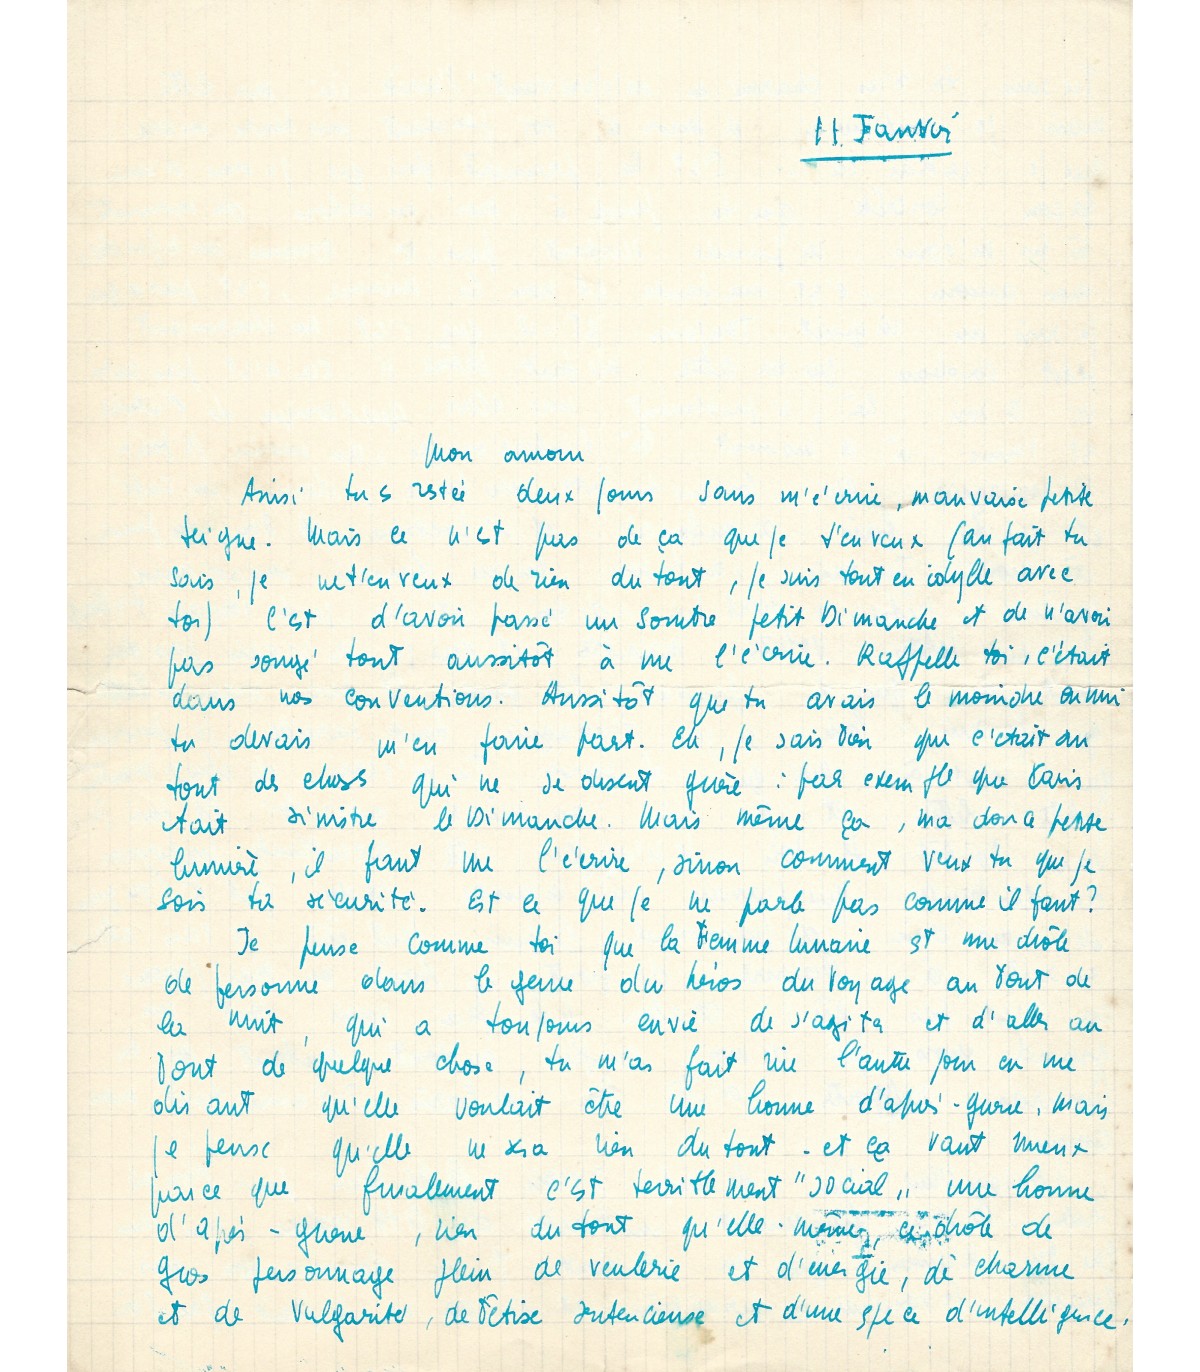 11 Janvier
Mon amour
Ainsi tu es restée deux jours sans m'écrire, mauvaise petite
teigne. Mais ce n'est pas de ça que je t'en veux (au fait tu
sais, je ne t'en veux de rien du tout, je suis tout en idylle avec
toi) c'est d'avoir passé un sombre petit Dimanche et de n'avoir
pas songé tout aussitôt à me l'écrire. Rappelle toi, c'était
dans nos conventions. Aussitôt que tu avais le moindre ennui
tu devais m'en faire part. Eh, je sais bien que c'était un
tout des choses qui ne se disent guère : par exemple que Paris
était sinistre le Dimanche. Mais même ça, ma douce petite
lumière, il faut me l'écrire, sinon comment veux tu que je
sois ta sécurité. Est ce que je ne parle pas comme il faut?
Je pense comme toi que la Femme lunaire est une drôle
de personne dans le genre du héros du Voyage au bout de
la nuit, qui a toujours envie de s'agiter et d'aller au
bout de quelque chose, tu m'as fait rire l'autre jour en me
disant qu'elle voulait être une bonne d'après-guerre, mais
je pense qu'elle ne sera rien du tout - et ça vaut mieux
parce que finalement c'est terriblement "social" une bonne
d'après-guerre, rien du tout qu'elle-même, ce drôle de
gros personnage plein de veulerie et d'énergie, de charme
et de vulgarité, de bêtise sentencieuse et d'une espèce d'intelligence.